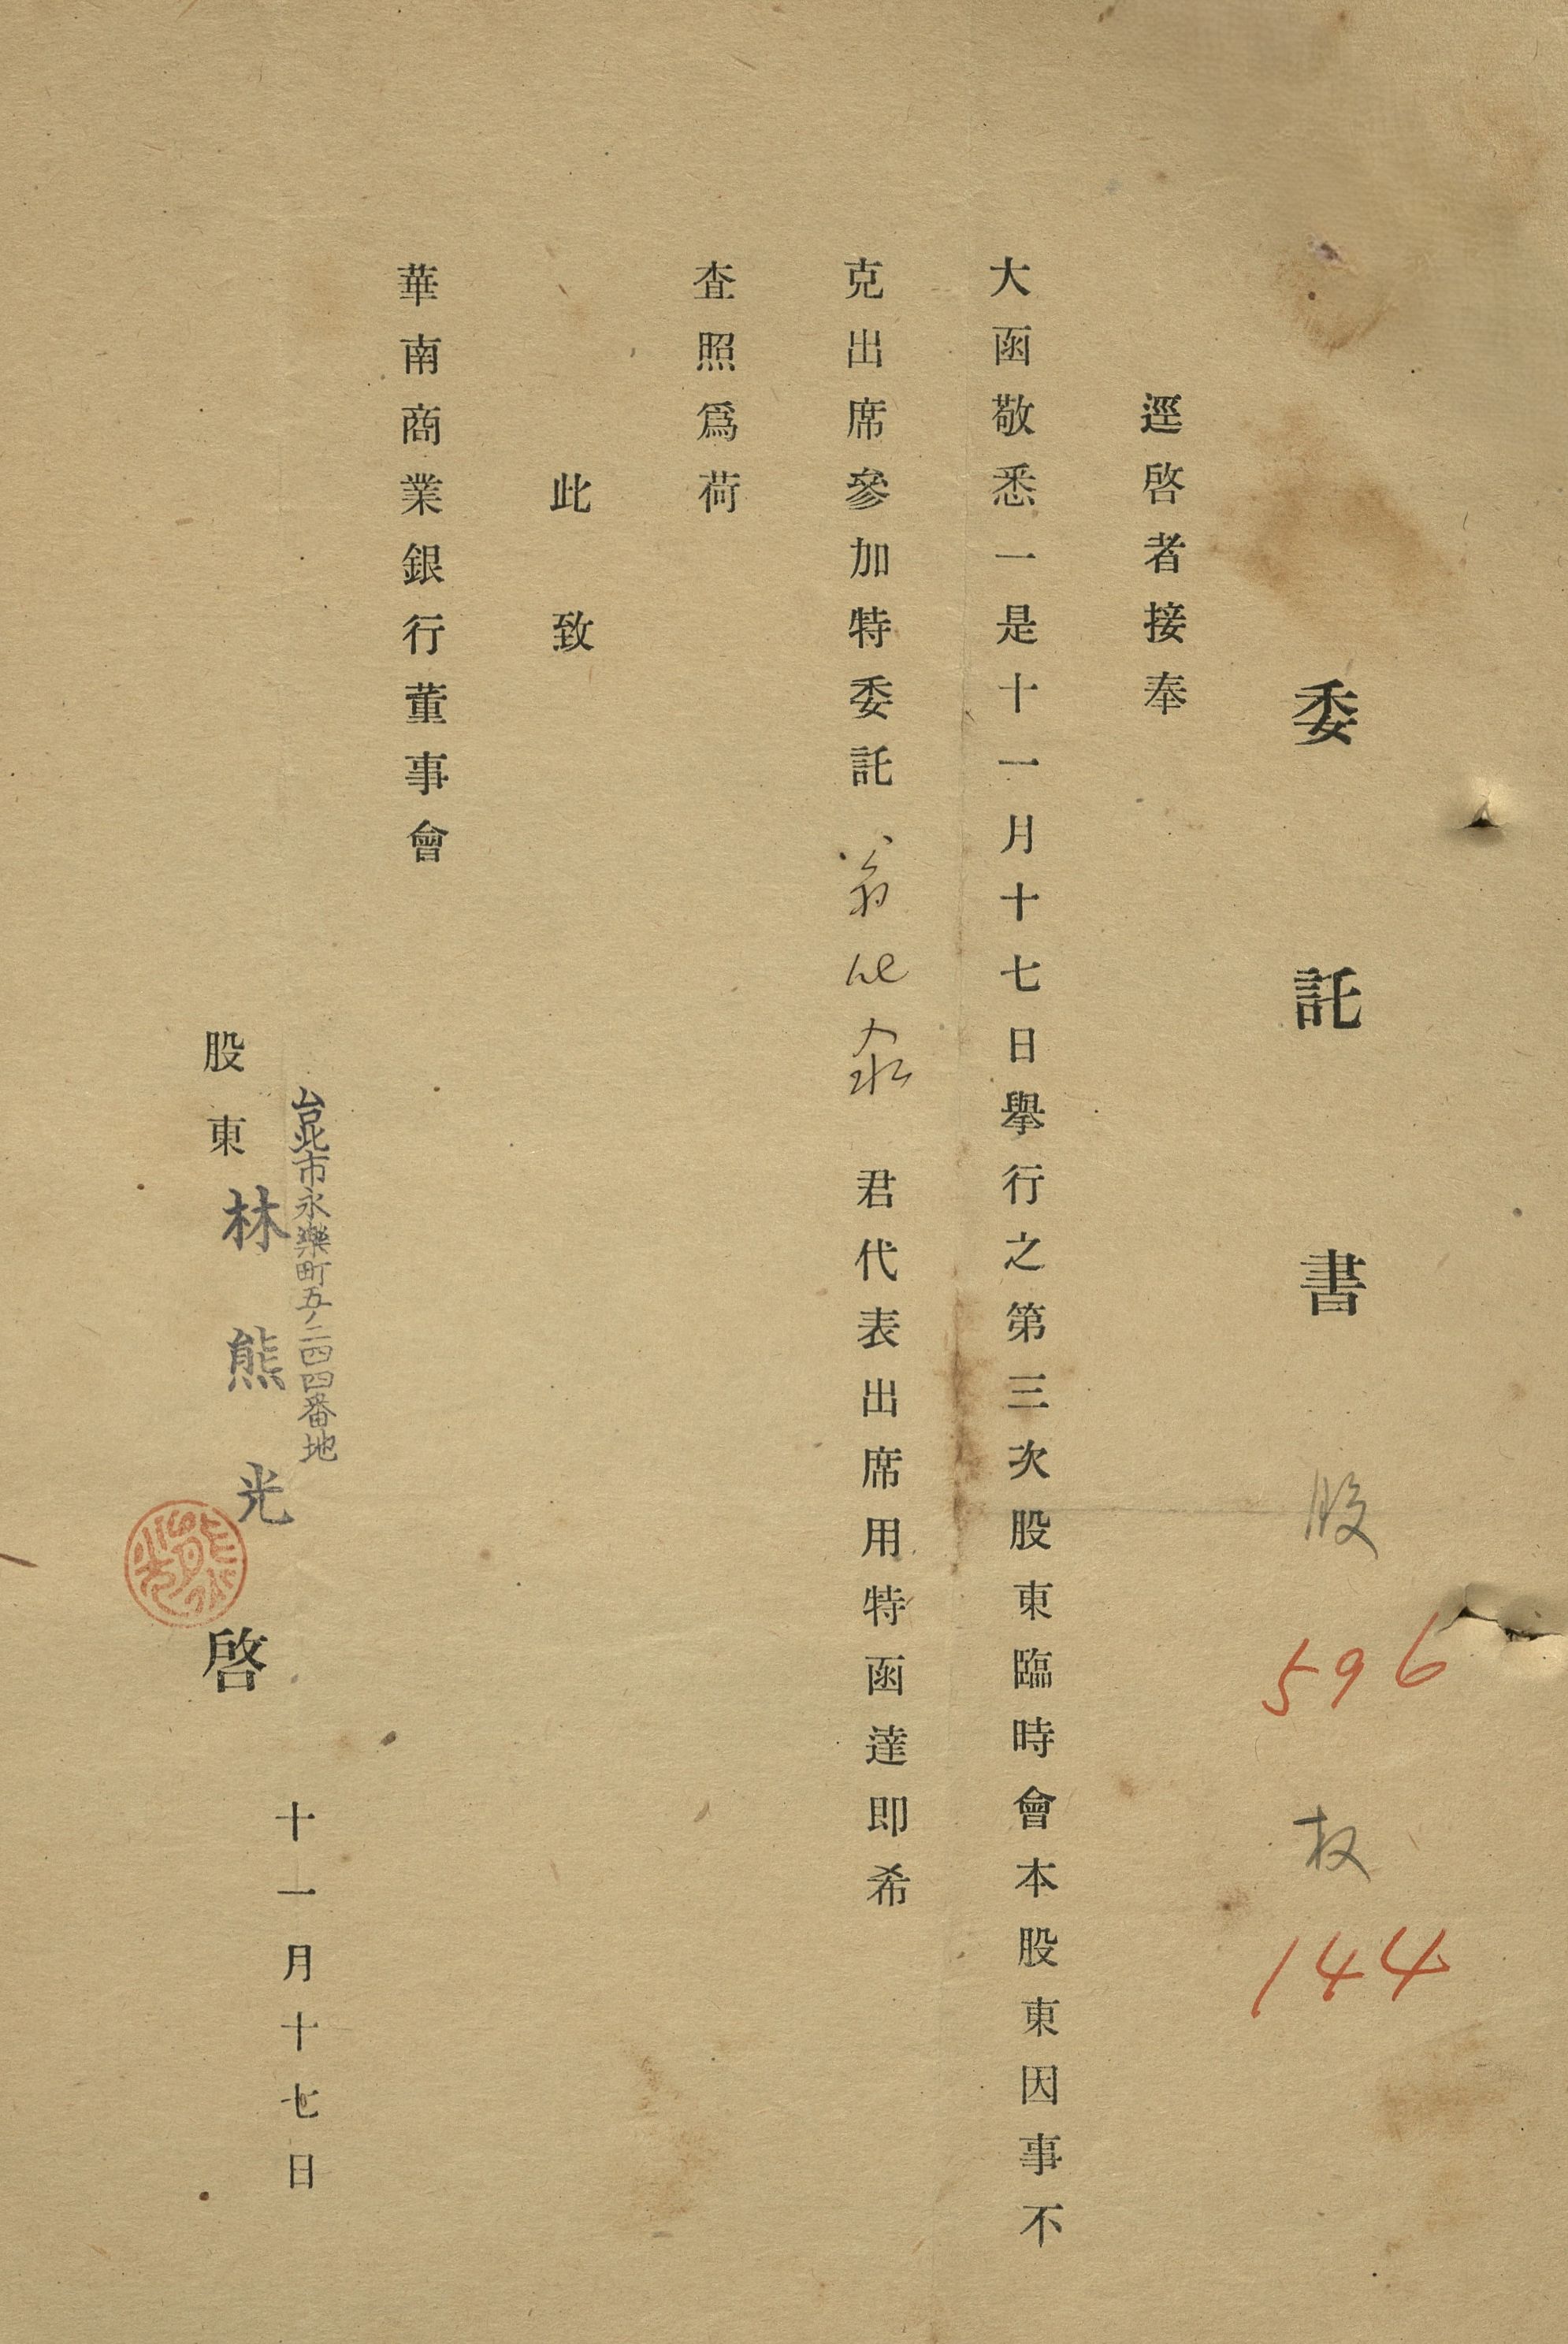 委託書 股 596 权 144
逕啓者接奉
大函敬悉一是十一月十七日舉行之第三次股東臨時會本股東因事不
克出席參加特委託 翁 君代表出席用特函達即希
査照爲荷
此致
華南商業銀行董事會
台北市永樂町五ノ二四四番地
股東 林熊光 啓
十一月十七日